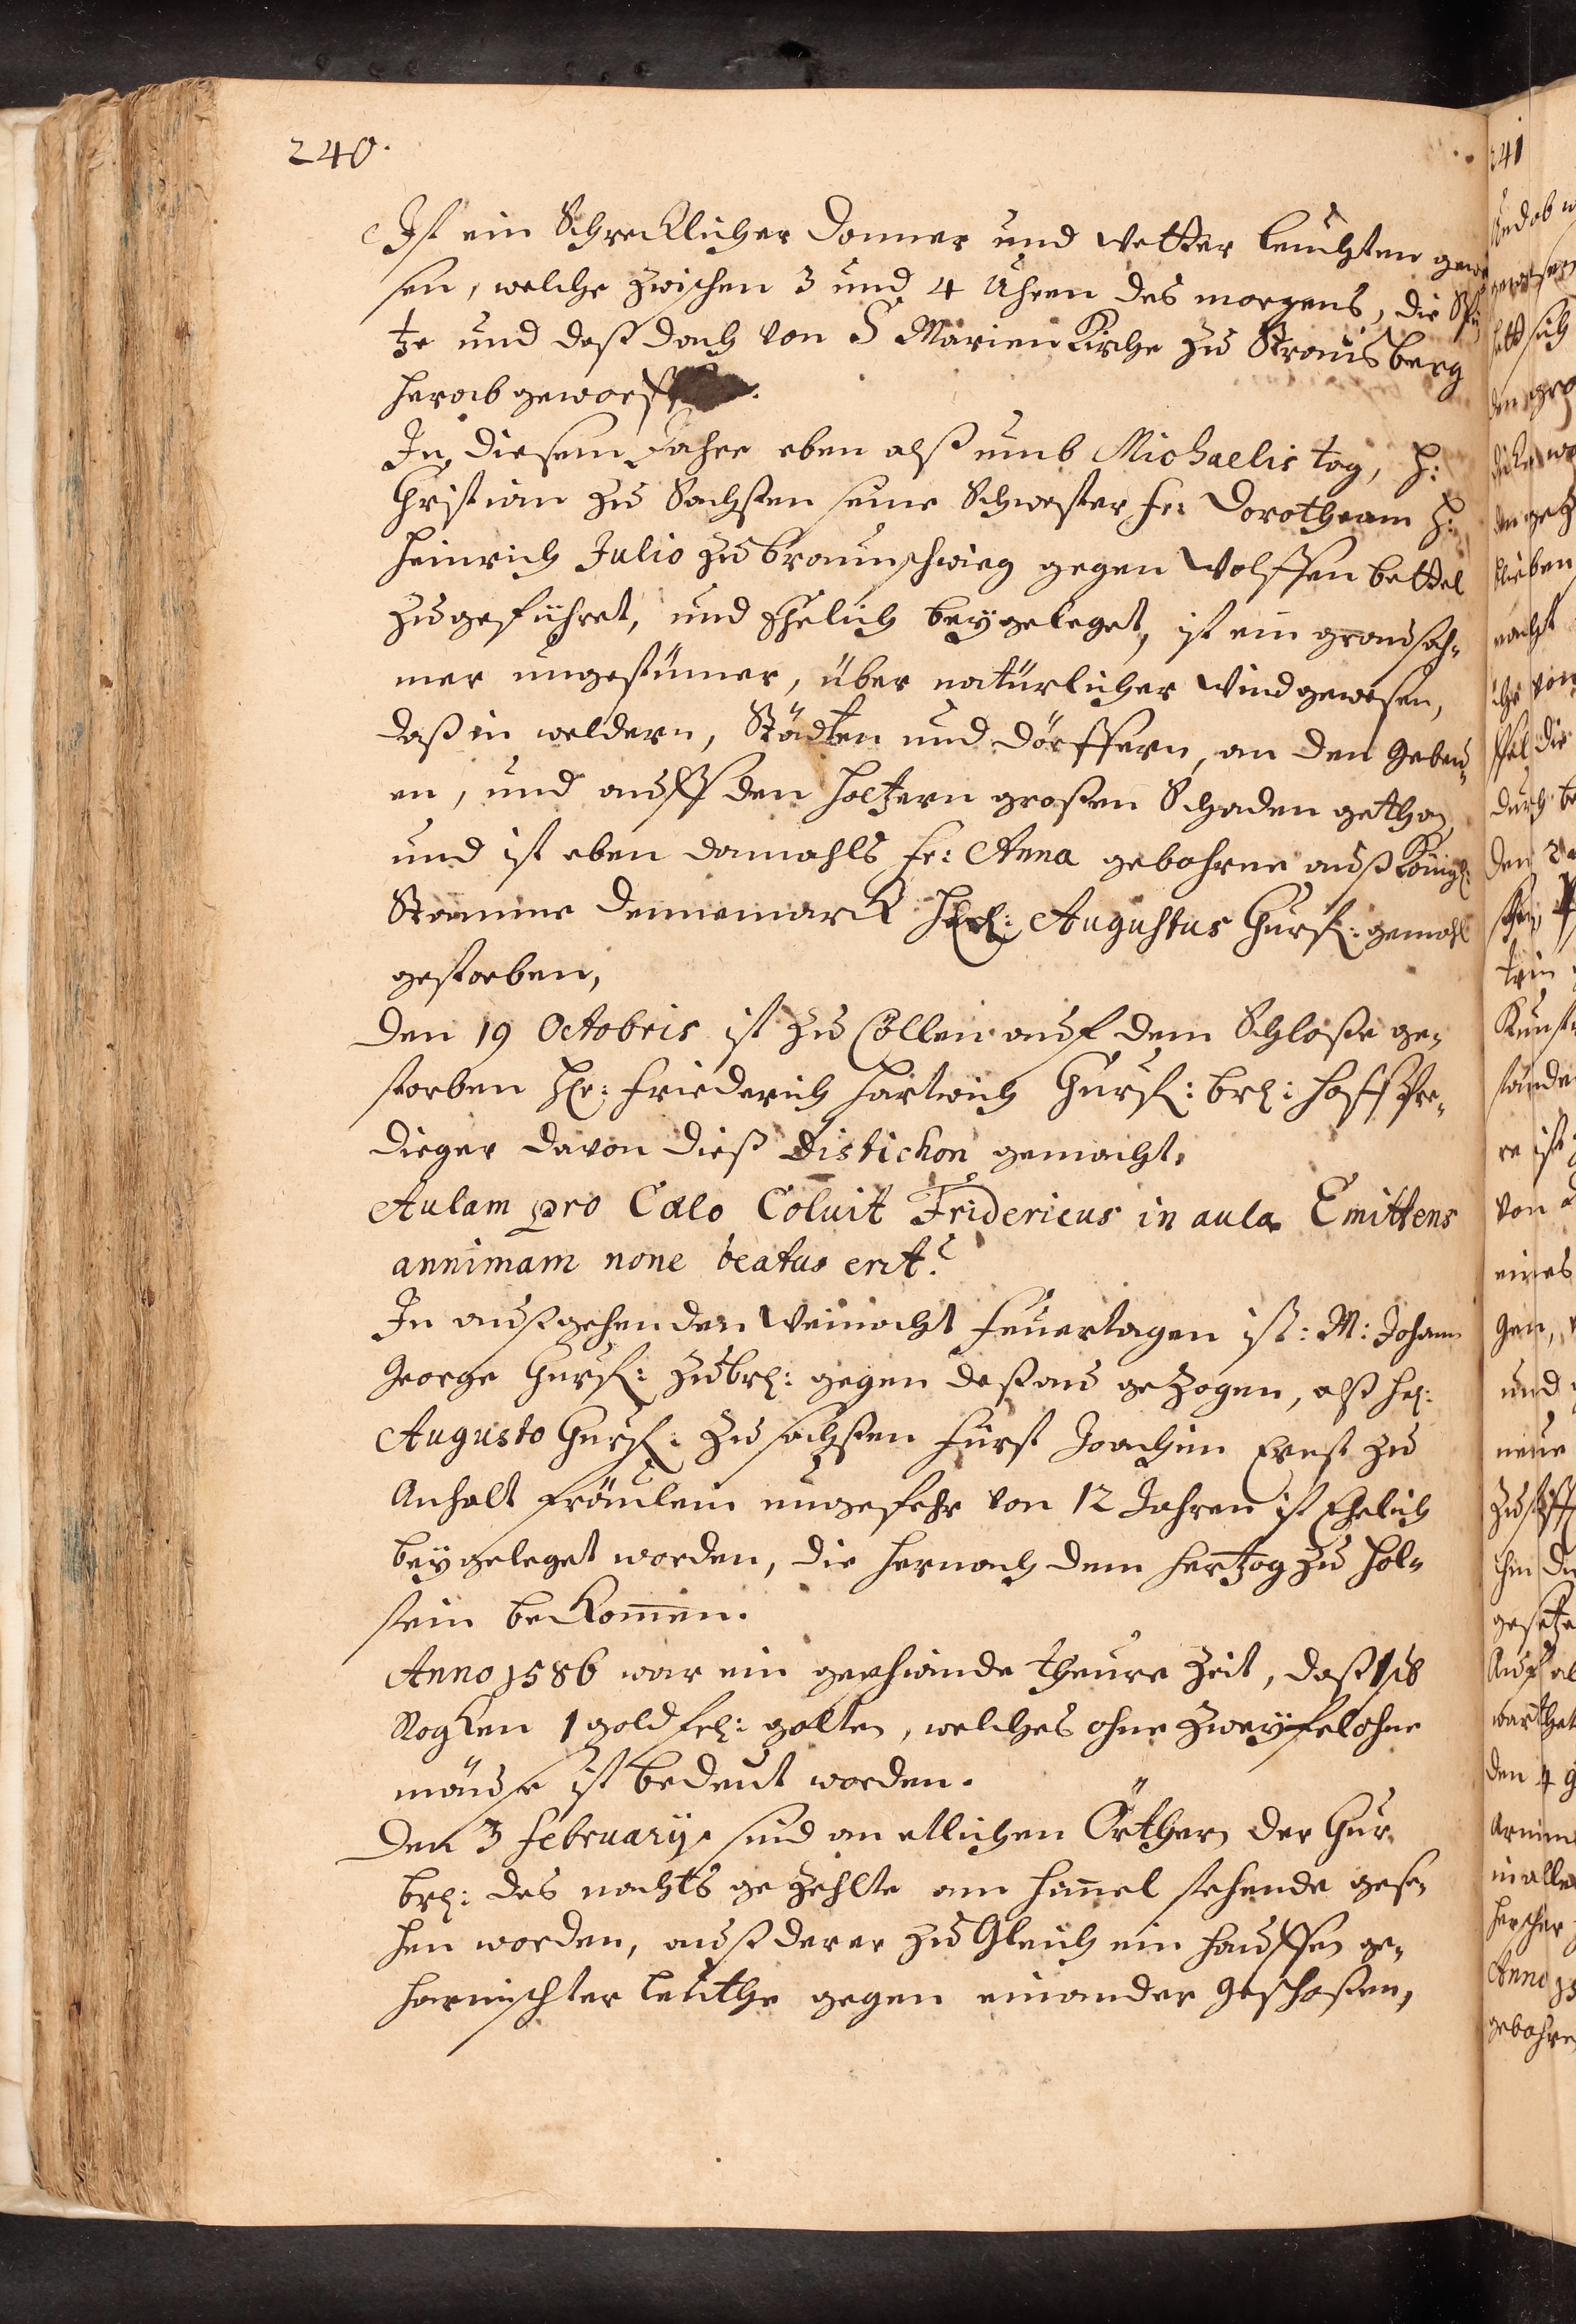 240.
Ist ein Schrecklicher Donner und Wetter leuchten gewe
sen, welche zwischen 3 und 4 Uhren des morgens, die Spi
tze und daß dach von S Marien Kirche zu Strausberg
herab geworff
In diesem Jahre eben alß umb Michaelis tag, H:
Christian zu Sachssen seine Schwester fr: Dorotheam H:
Heinrich Julio zu braunschwieg gegen Wolffen bettel
zugeführet, und Ehelich beygeleget, ist ein grausah-
mer ungestümer, über natürlicher Wind gewesen,
daß in weldern, Städten und dörffern, an den Gebeu-
en, und auff den holtzern großen Schaden gethan
und ist eben damahls fr: Anna gebohrne auß Königl:
Stamme Dennemarck Augustus Churf: gemahl
gestorben,
Den 19 Octobris ist zu Cöllen auf dem Schloße ge-
storben Hr: Friederich Hartwich Churf: brl: Hoff Pre-
dieger davon dieß Distichon gemacht,
Aulam pro Cælo Coluit Fridericus in aula Emittens
annimam none beatus erit?
In außgehenden Weinacht Feuertagen ist: M: Johann
George Churf: zu brl: gegen deßau gezogen, alß hr:
Augusto Churf: zu sachssen Fürst Joachim Ernst zu
Anhalt Fräulein ungefehr von 12 Jahren ist Ehelich
beygeleget worden, die hernach dem Hertzog zu Hol-
stein bekom̄en.
Anno 1586 war ein geschwinde theure Zeit, daß 1
Rogken 1 gold golten, welches ohne zweyfel ohne
mäuse ist bedeut worden.
Den 3 February sind an etlichen Örthern der Chur
brl: des nachts gezehlte am him̄el stehende gese-
hen worden, auß derer zu Gleich ein hauffen ge-
harnischter leuthe gegen einander geschoßen,